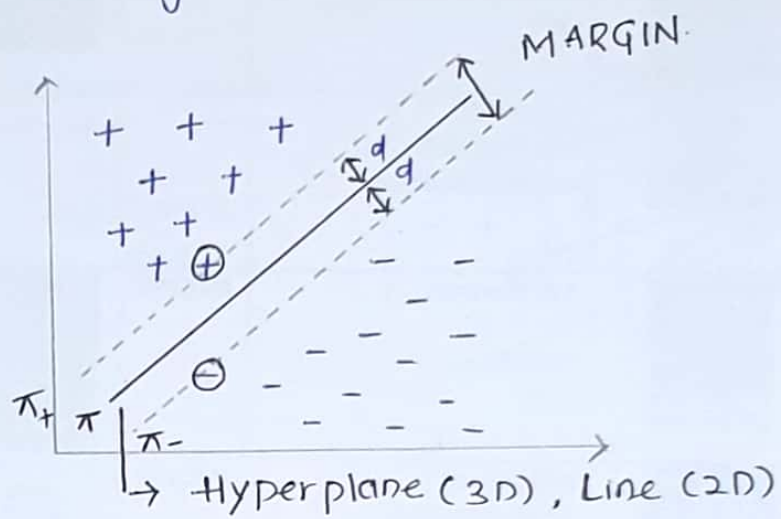 MARGIN.
d
d
π+
π
π-
→ Hyperplane (3D), Line (2D)